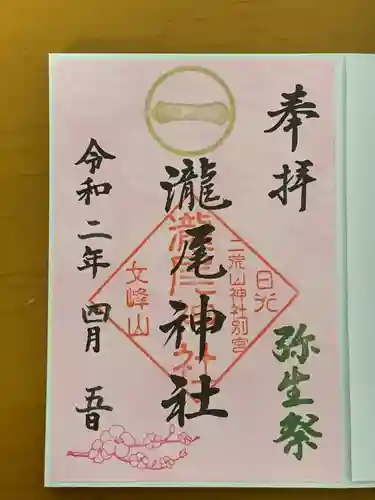 奉拝
弥生祭
日光
二荒山神社別宮
瀧尾神社
瀧尾神社
女峰山
一
令和二年四月五日